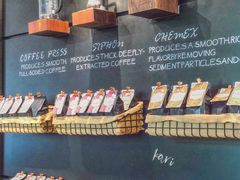 COFFEE PRESS
PRODUCES SMOOTH
FULL BODIED COFFEE
SIPHON
PRODUCES THICK DEEPLY-
EXTRACTED COFFEE
CHEMEX
PRODUCES A SMOOTH, RI
FLAVOR BY REMOVING
SEDIMENT PARTICLES AND